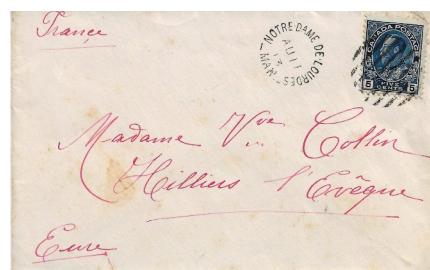 France
NOTRE DAME DE LOURDES
AU 11
13
MAN
CANADA POSTAGE
5 FIVE 5
CENTS
Madame Vve Collin
Hilliers l'Evêque
Eure